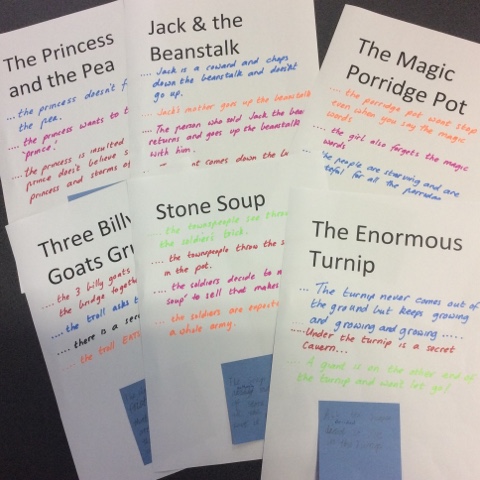 The Princess
and the Pea
...the princess doesn't f
the pea.
....the princess wants to t
'prince.'
....the princess is insulted
prince doesn't believe s
princess and storms of
Jack & the
Beanstalk
.... Jack is a coward and chops
down the beanstalk and doesn't
go up.
.... Jack's mother goes up the beanstalk
.... The person who sold Jack the bea
returns and goes up the beanstalk
with him.
nt comes down the
The Magic
Porridge Pot
.... the porridge pot wont stop
even when you say the magic
words
.... the girl also forgets the magic
words
the people are starving and are
for all the porridge
Three Billy
Goats Gru
.... the 3 billy goats
the bridge togeth
.... the troll asks t
.... there is a
... the troll EATS
Stone Soup
.... the townspeople see throu
the soldiers trick.
.... the townpeople throw the s
in the pot.
.... the soldiers decide to
soup' to sell that makes
.... the soldiers are
a whole army.
The Enormous
Turnip
... The turnip never comes out of
the ground but keeps growing
and growing and growing .....
.....Under the turnip is a secret
cavern...
A giant is on the other end of
the turnip and wont let go!